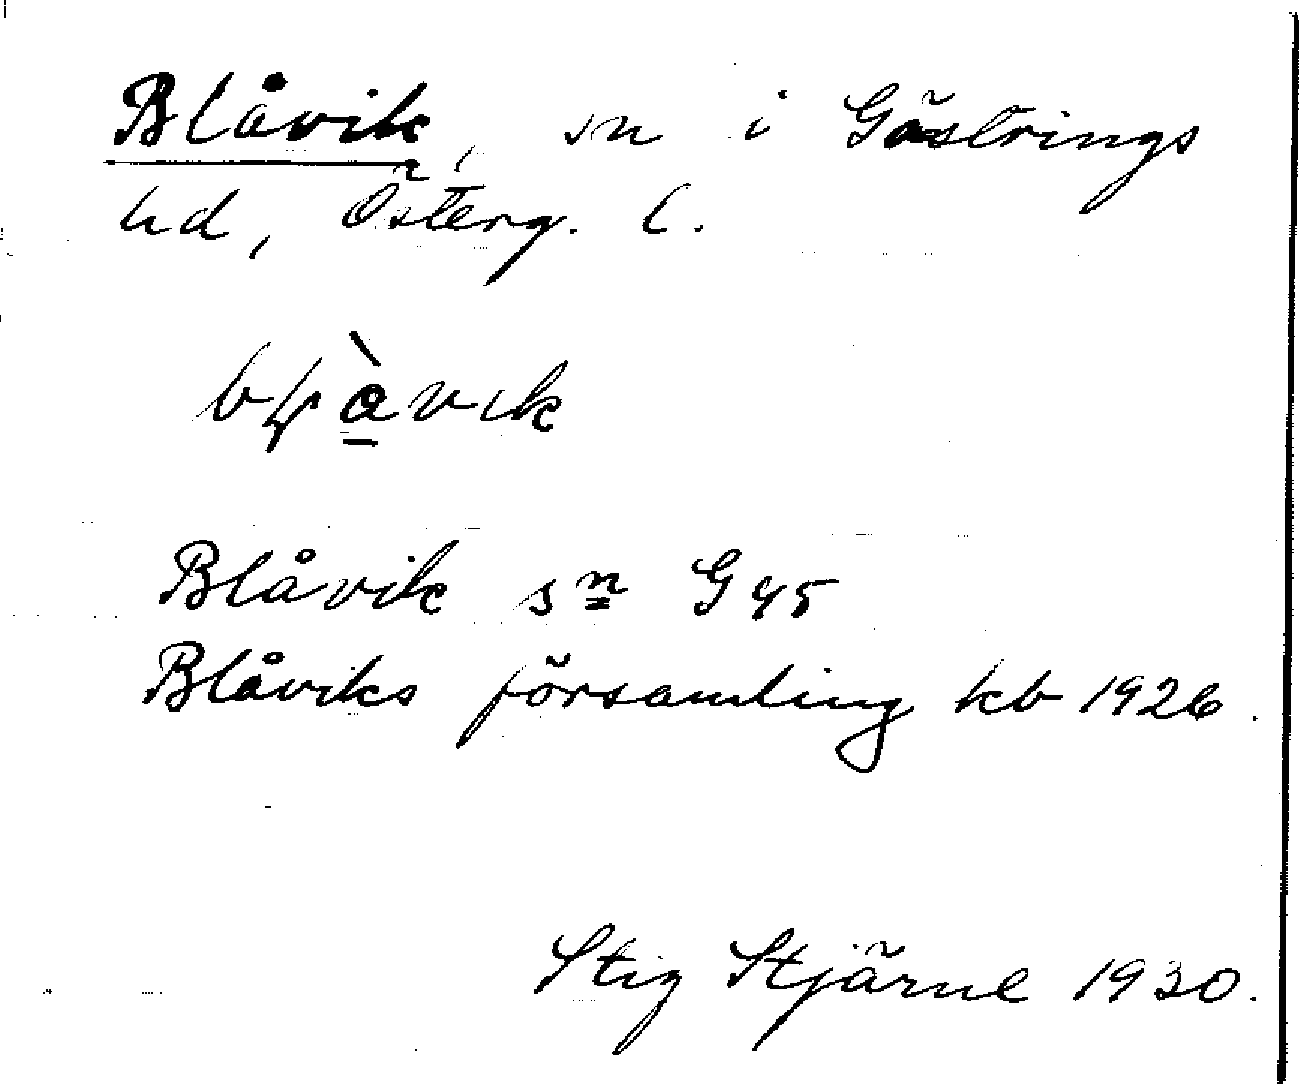 Blåvik, sn i Göstrings
hd, Österg. l.
Blåvik sn G 45
Blåviks församling kb 1926.
Stig Stjärne 1930.